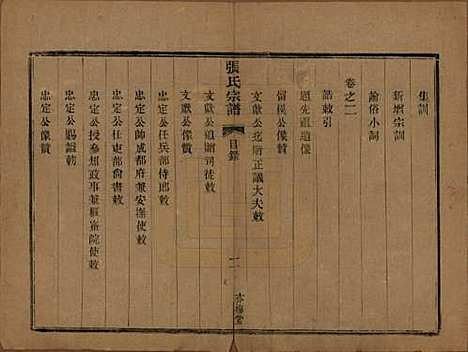 集訓
新增宗訓
諭俗小詞
卷之二
誥敕引
題先通道像
侗樸公像贊
文獻公追贈正議大夫敕
張氏宗譜
目錄
二
亦梅堂
文獻公追贈司徒敕
文獻公像贊
忠定公任兵部侍郎敕
忠定公帥成都府兼安撫使敕
忠定公任吏部尙書敕
忠定公授參知政事兼樞密院使敕
忠定公賜謚勅
忠定公像贊